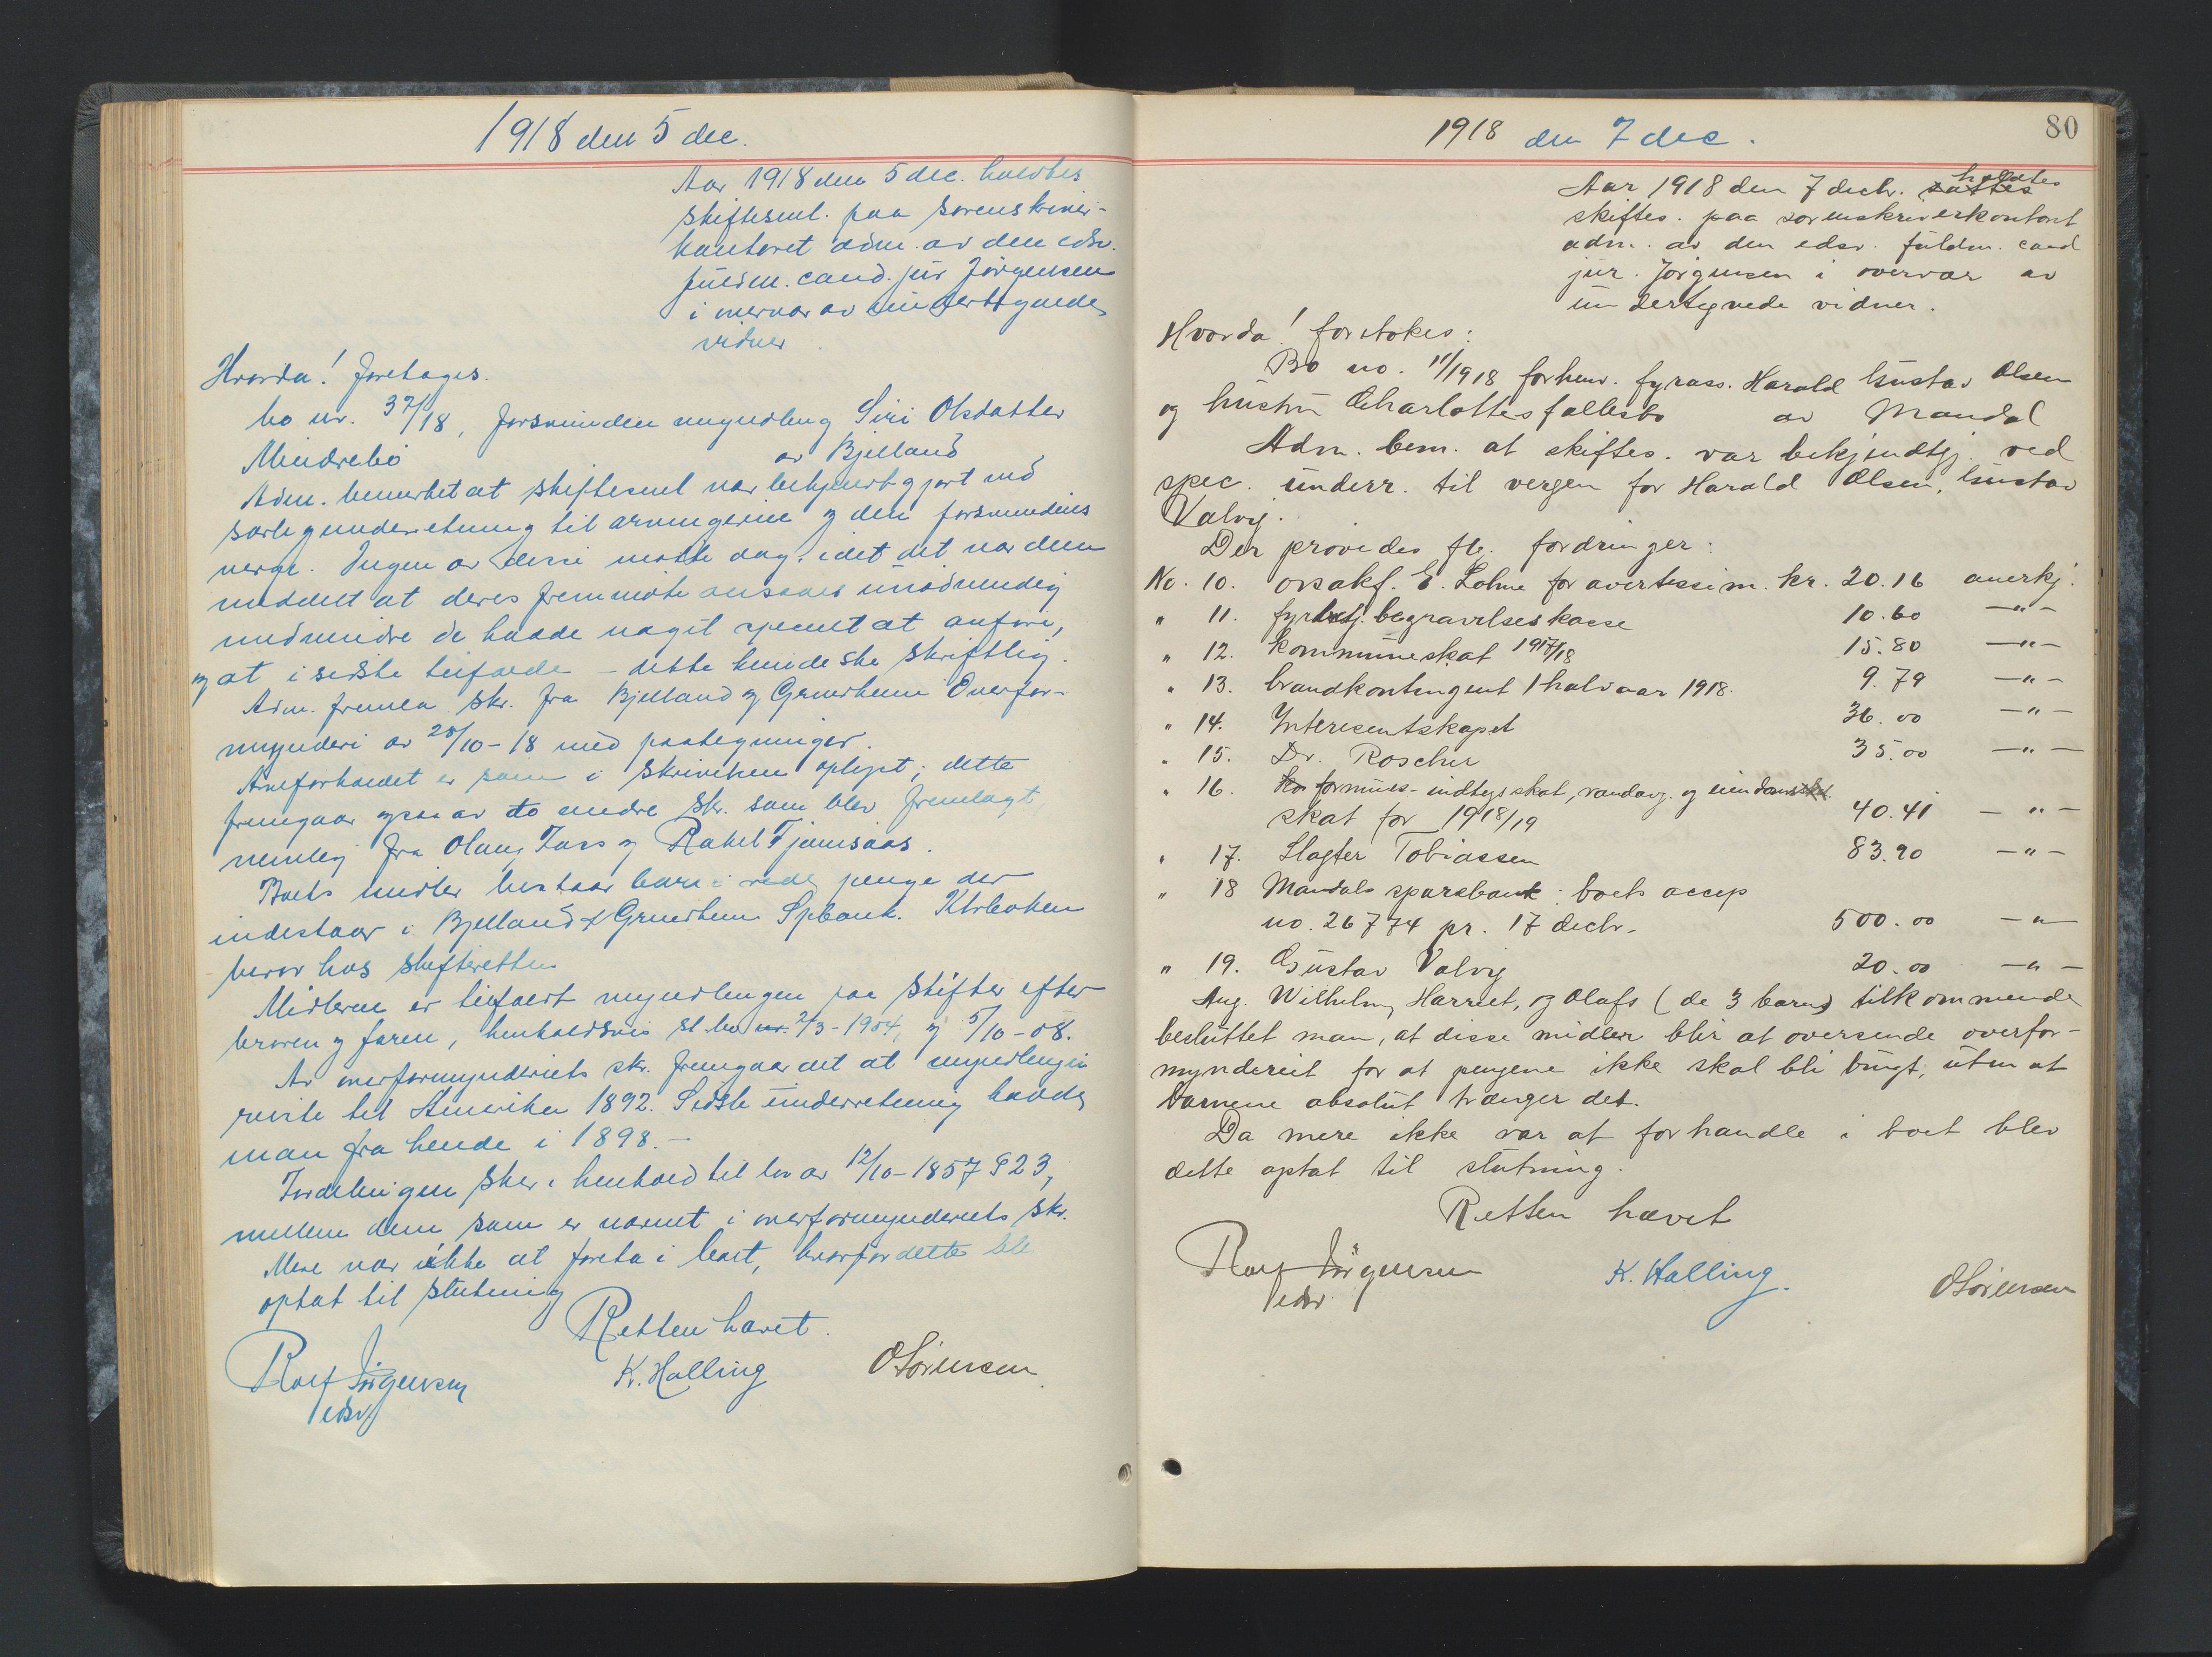 1918 den 5 dec.
Aar 1918 den 5 dec. holdtes
skiftesml. paa sorenskriver-
kontoret adm. av den edsv.
fuldm. cand. jur Jörgensen
i overvær av undertegnede
vidner.
Hvorda! foretages.
bo nr. 37/18, forsvunden myndling Siri Olsdatter
Mindrebö av Bjelland
Adm. bemerket at skiftesml var bekjentgjort ved
særlig underretning til arvingerne og den forsvundnes
verge. Ingen av disse møtte dag. idet det var dem
meddelt at deres fremmöte ansaaes unödvendig
medmindre de havde noget specielt at anföre,
og at i sidste tilfælde – dette kunde ske skriftlig.
Adm. fremla skr. fra Bjelland og Grindheim Overfor-
mynderi av 28/10-18 med paategninger.
Arveforholdet er som i skrivelsen oplyst; dette
fremgaar ogsaa av to andre skr. som blev fremlagt,
nemlig fra Olaus Foss og Rakel Tjomsaas.
Boets midler bestaar bare i rede penge der
indestaar i Bjelland & Grindheim Spbank.
beror hos skifteretten
Midlerne er tilfaldt myndlingen paa skifter efter
broren og faren, henholdsvis sl. bo nr. 2/3-1904, og 5/10-08.
Av overformynderiets skr. fremgaar det at myndlingen
reiste til Amerika 1892. Sidste underretning havde
man fra hende i 1898.–
Fordelingen sker i henhold til lov av 12/10-1857 § 23,
mellem dem som er nævnt i overformynderiets skr.
Mere var ikke at foreta i boet, hvorfor dette ble
optat til slutning
Retten hævet.
Rolf Jörgensen K. Halling O Sörensen
edsv.
1918 den 7 dec.
80
Aar 1918 den 7 decbr. sattes holdtes
skiftes. paa sorenskriverkontoret
adm. av den edsv. fuldm. cand
jur. Jörgensen i overvær av
undertegnede vidner.
Hvorda! foretokes:
Bo no. 11/1918 forhenv. fyrass. Harald Gustav Olsen
og hustru Charlottes fællesbo av Mandal
Adm. bem. at skiftes. var bekjendtgj. ved
spec. underr. til vergen for Harald Olsen, Gustav
Valvig.
Der provedes flg. fordringer:
No. 10. ovsakf. E. Lohne for avertissem. kr. 20.16 anerkj.
" 11. fyrbetj. begravelseskasse 10.60 —"—
" 12. kommuneskat 1917/18 15.80 —"—
" 13. brandkontingent 1 halvaar 1918. 9.79 —"—
" 14. Interesentskapet 36.00 —"—
" 15. Dr. Roscher 35.00 —"—
" 16. formues- indtegsskat, vandavg. og eiendoms
skat for 1918/19 40.41 —"—
" 17. Slagter Tobiassen 83.90 —"—
" 18 Mandals sparebank: boets accep
no. 26774 pr. 17 decbr. 500.00 —"—
" 19. Gustav Valvig 20.00 —"—
Ang. Wilhelm, Harriet, og Olafs (de 3 barns) tilkommende
besluttet man, at disse midler blir at oversende overfor-
mynderiet for at pengene ikke skal bli brugt, uten at
barnene absolut trænger det.
Da mere ikke var at forhandle i boet blev
dette optat til slutning.
Retten hævet
Rolf Jörgensen K. Halling. O Sörensen
edsv.